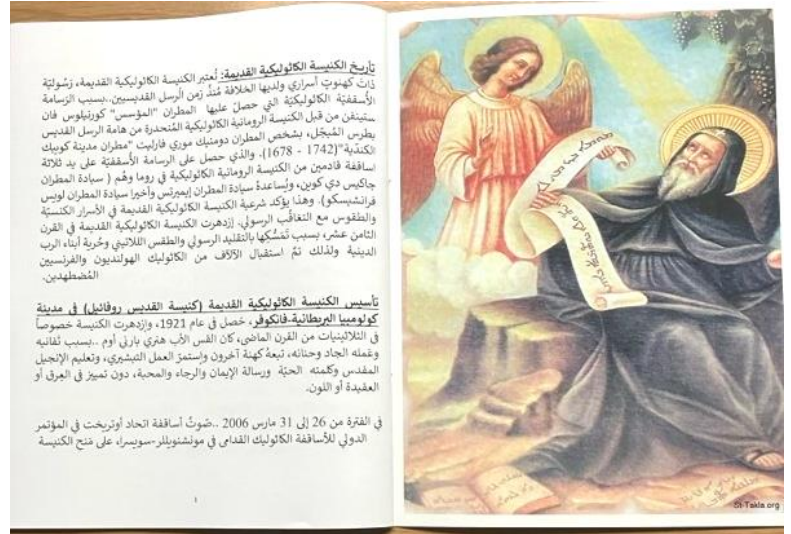 تأريخ الكنيسة الكاثوليكية القديمة: تُعتبر الكنيسة الكاثوليكية القديمة، رَسُوليّة
ذاتَ كهنوتٍ أسراري ولديها الخلافة مُنذُ زمن الرسل القديسيين..بسبب الرَسامة
الأسقفيّة الكاثوليكيّة التي حصلَ عليها المطران "المؤسس" كورنيلوس فان
ستينفن من قبل الكنيسة الرومانية الكاثوليكية المُنحدرة من هامة الرسل القديس
بطرس المُبجّل، بشخص المطران دومنيك موري فارليت "مطران مدينة كوبيك
الكنديّة"(1742 - 1678). والذي حصل على الرسامة الأسقفيّة على يد ثلاثة
اساقفة قادمين من الكنيسة الرومانية الكاثوليكية في روما وهُم ( سيادة المطران
جاكيس دي كوين، ويُساعدهُ سيادة المطران إيمبرتس وأخيرا سيادة المطران لويس
فرانشيسكو). وهذا يؤكد شرعية الكنيسة الكاثوليكية القديمة في الأسرار الكنسيّة
والطقوس مع التعاقُب الرسولي. إزدهرت الكنيسة الكاثوليكية القديمة في القرن
الثامن عشر، بسبب تَمَسُكِها بالتقليد الرسولي والطقس اللاتيني وحُرية أبناء الرب
الدينية ولذلك تمّ استقبال الآلآف من الكاثوليك الهولنديون والفرنسيين
المُضطهدين.
تأسيس الكنيسة الكاثوليكية القديمة (كنيسة القديس روفائيل) في مدينة
كولومبيا البريطانية-فانكوفر، حَصل في عام 1921، وإزدهرت الكنيسة خصوصاً
في الثلاثينيات من القرن الماضي، كان القس الأب هنري بارني أوم ..بسبب تفانيه
وعَمله الجاد وحنانه، تبعهُ كهنة آخرون وإستمرّ العمل التبشيري، وتعليم الإنجيل
المقدس وكلمته الحيّة ورسالة الإيمان والرجاء والمحبة، دون تمييز في العِرق أو
العقيدة أو اللون.
في الفترة من 26 إلى 31 مارس 2006 ..صَوتَ أساقفة اتحاد أوتريخت في المؤتمر
الدولي للأساقفة الكاثوليك القدامى في مونشنويللر-سويسرا، على مَنح الكنيسة
1
St-Takla.org